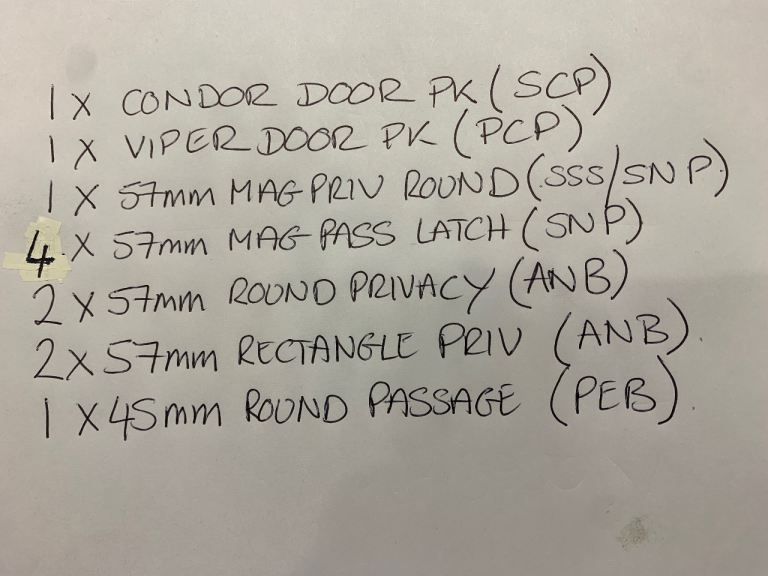 1 X CONDOR DOOR PK (SCP)
1 X VIPER DOOR PK (PCP)
1 X 57mm MAG PRIV ROUND (SSS/SNP)
4 X 57mm MAG PASS LATCH (SNP)
2 X 57mm ROUND PRIVACY (ANB)
2 X 57mm RECTANGLE PRIV (ANB).
1 X 45mm ROUND PASSAGE (PEB).